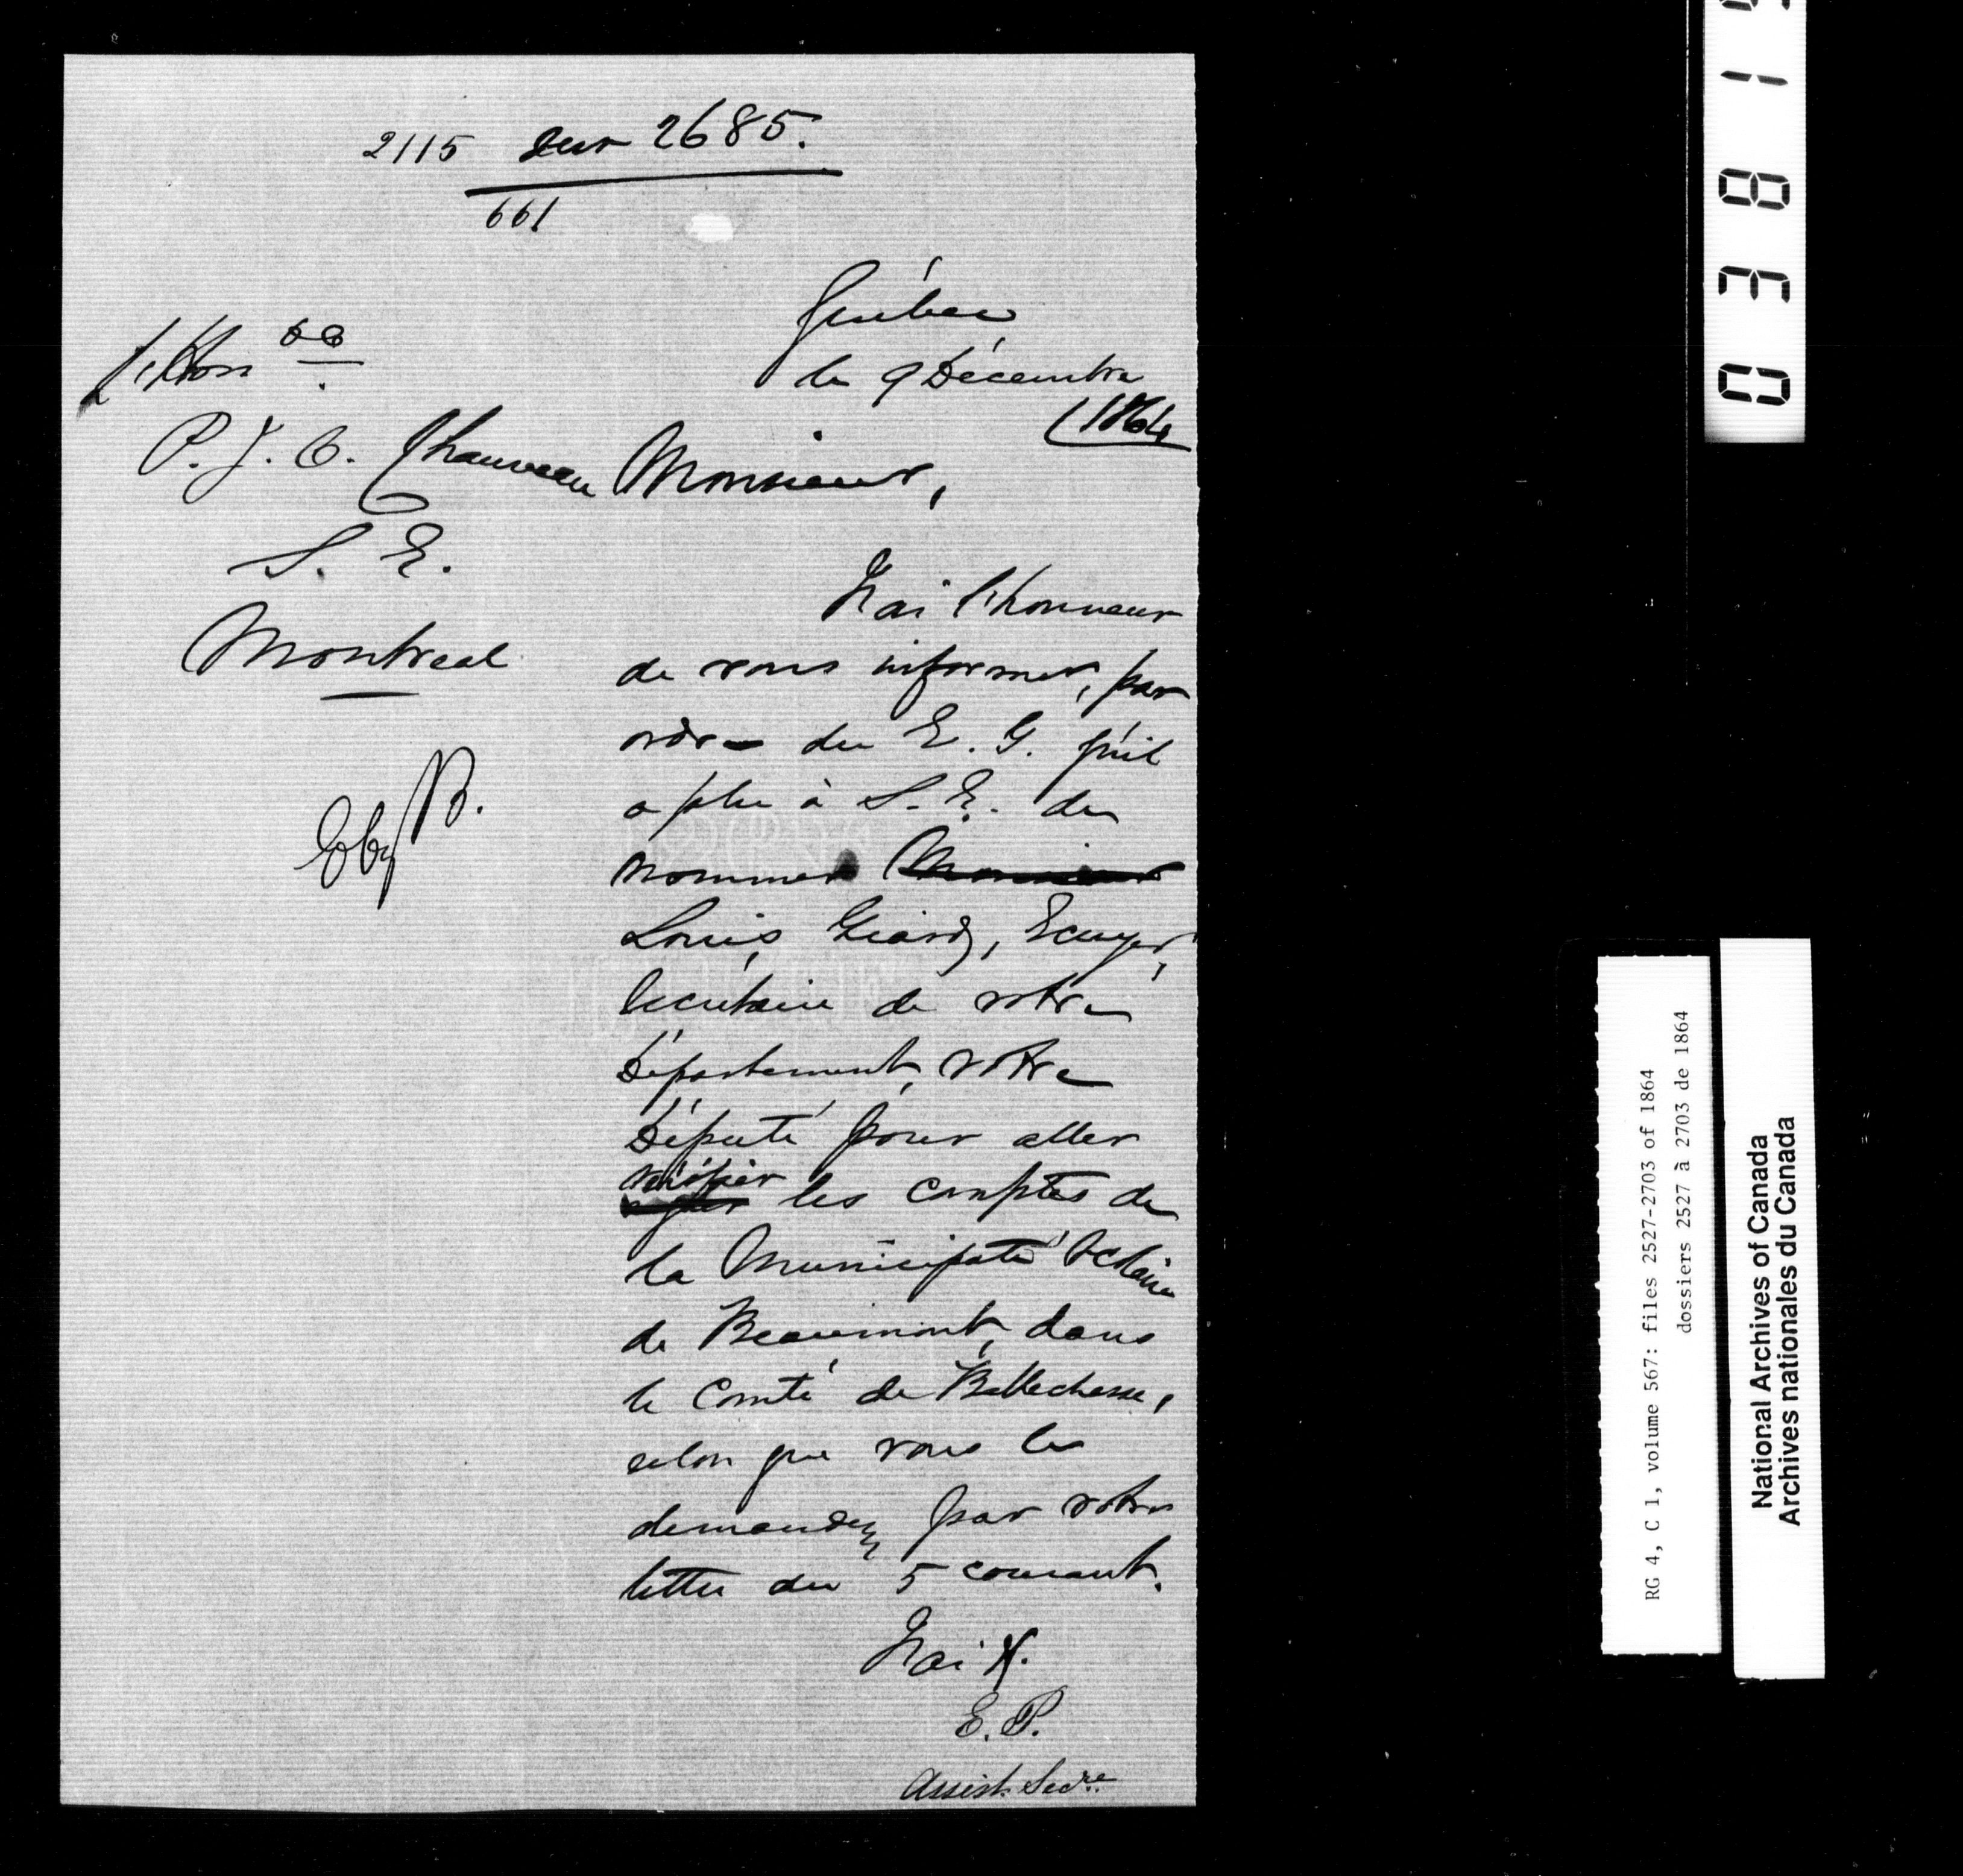 2115 sur 2685.
661
Québec
le 9 Décembre
1864
l'Hon ble
P. J. O. Chauveau
S. E.
Montreal
Monsieur,
J'ai l'honneur
de vous informer, par
ordre du G. G. qu'il
a plu à S. E. de
nommer Monsieur
Louis Giard, Ecuyer,
Secrétaire de votre
Département, votre
Député pour aller
vérifier
les comptes de
la Municipaté Scolaire
de Beaumont, dans
le Comté de Bellechasse,
selon que vous le
demandez par votre
lettre du 5 courant.
J'ai &.
E. P.
Assist. Secre
0 3 8 1
RG 4, C 1, volume 567: files 2527-2703 of 1864
dossiers 2527 à 2703 de 1864
National Archives of Canada
Archives nationales du Canada